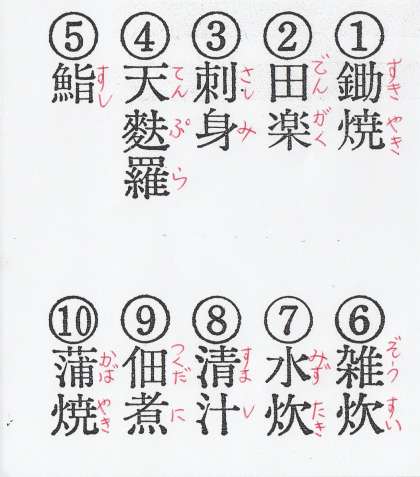 ①鋤焼
すきやき
②田楽
でんがく
③刺身
さしみ
④天麩羅
てんぷら
⑤鮨
すし
⑥雑炊
ぞうすい
⑦水炊
みずたき
⑧清汁
すまし
⑨佃煮
つくだに
⑩蒲焼
かばやき